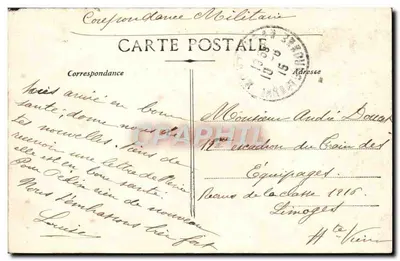 Correspondance Militaire
CARTE POSTALE
Correspondance
Adresse
arrivé en bon
santé, donne nous de
tes nouvelles. Viens de
recevoir une lettre de
elle est en bone santé.
Pour rien de nouveau
Nous t'embrassons bien fort
Louise
Monsieur André
escadron du Train des
Équipages.
Recrue de la classe 1916
Limoges
Hte Vienne